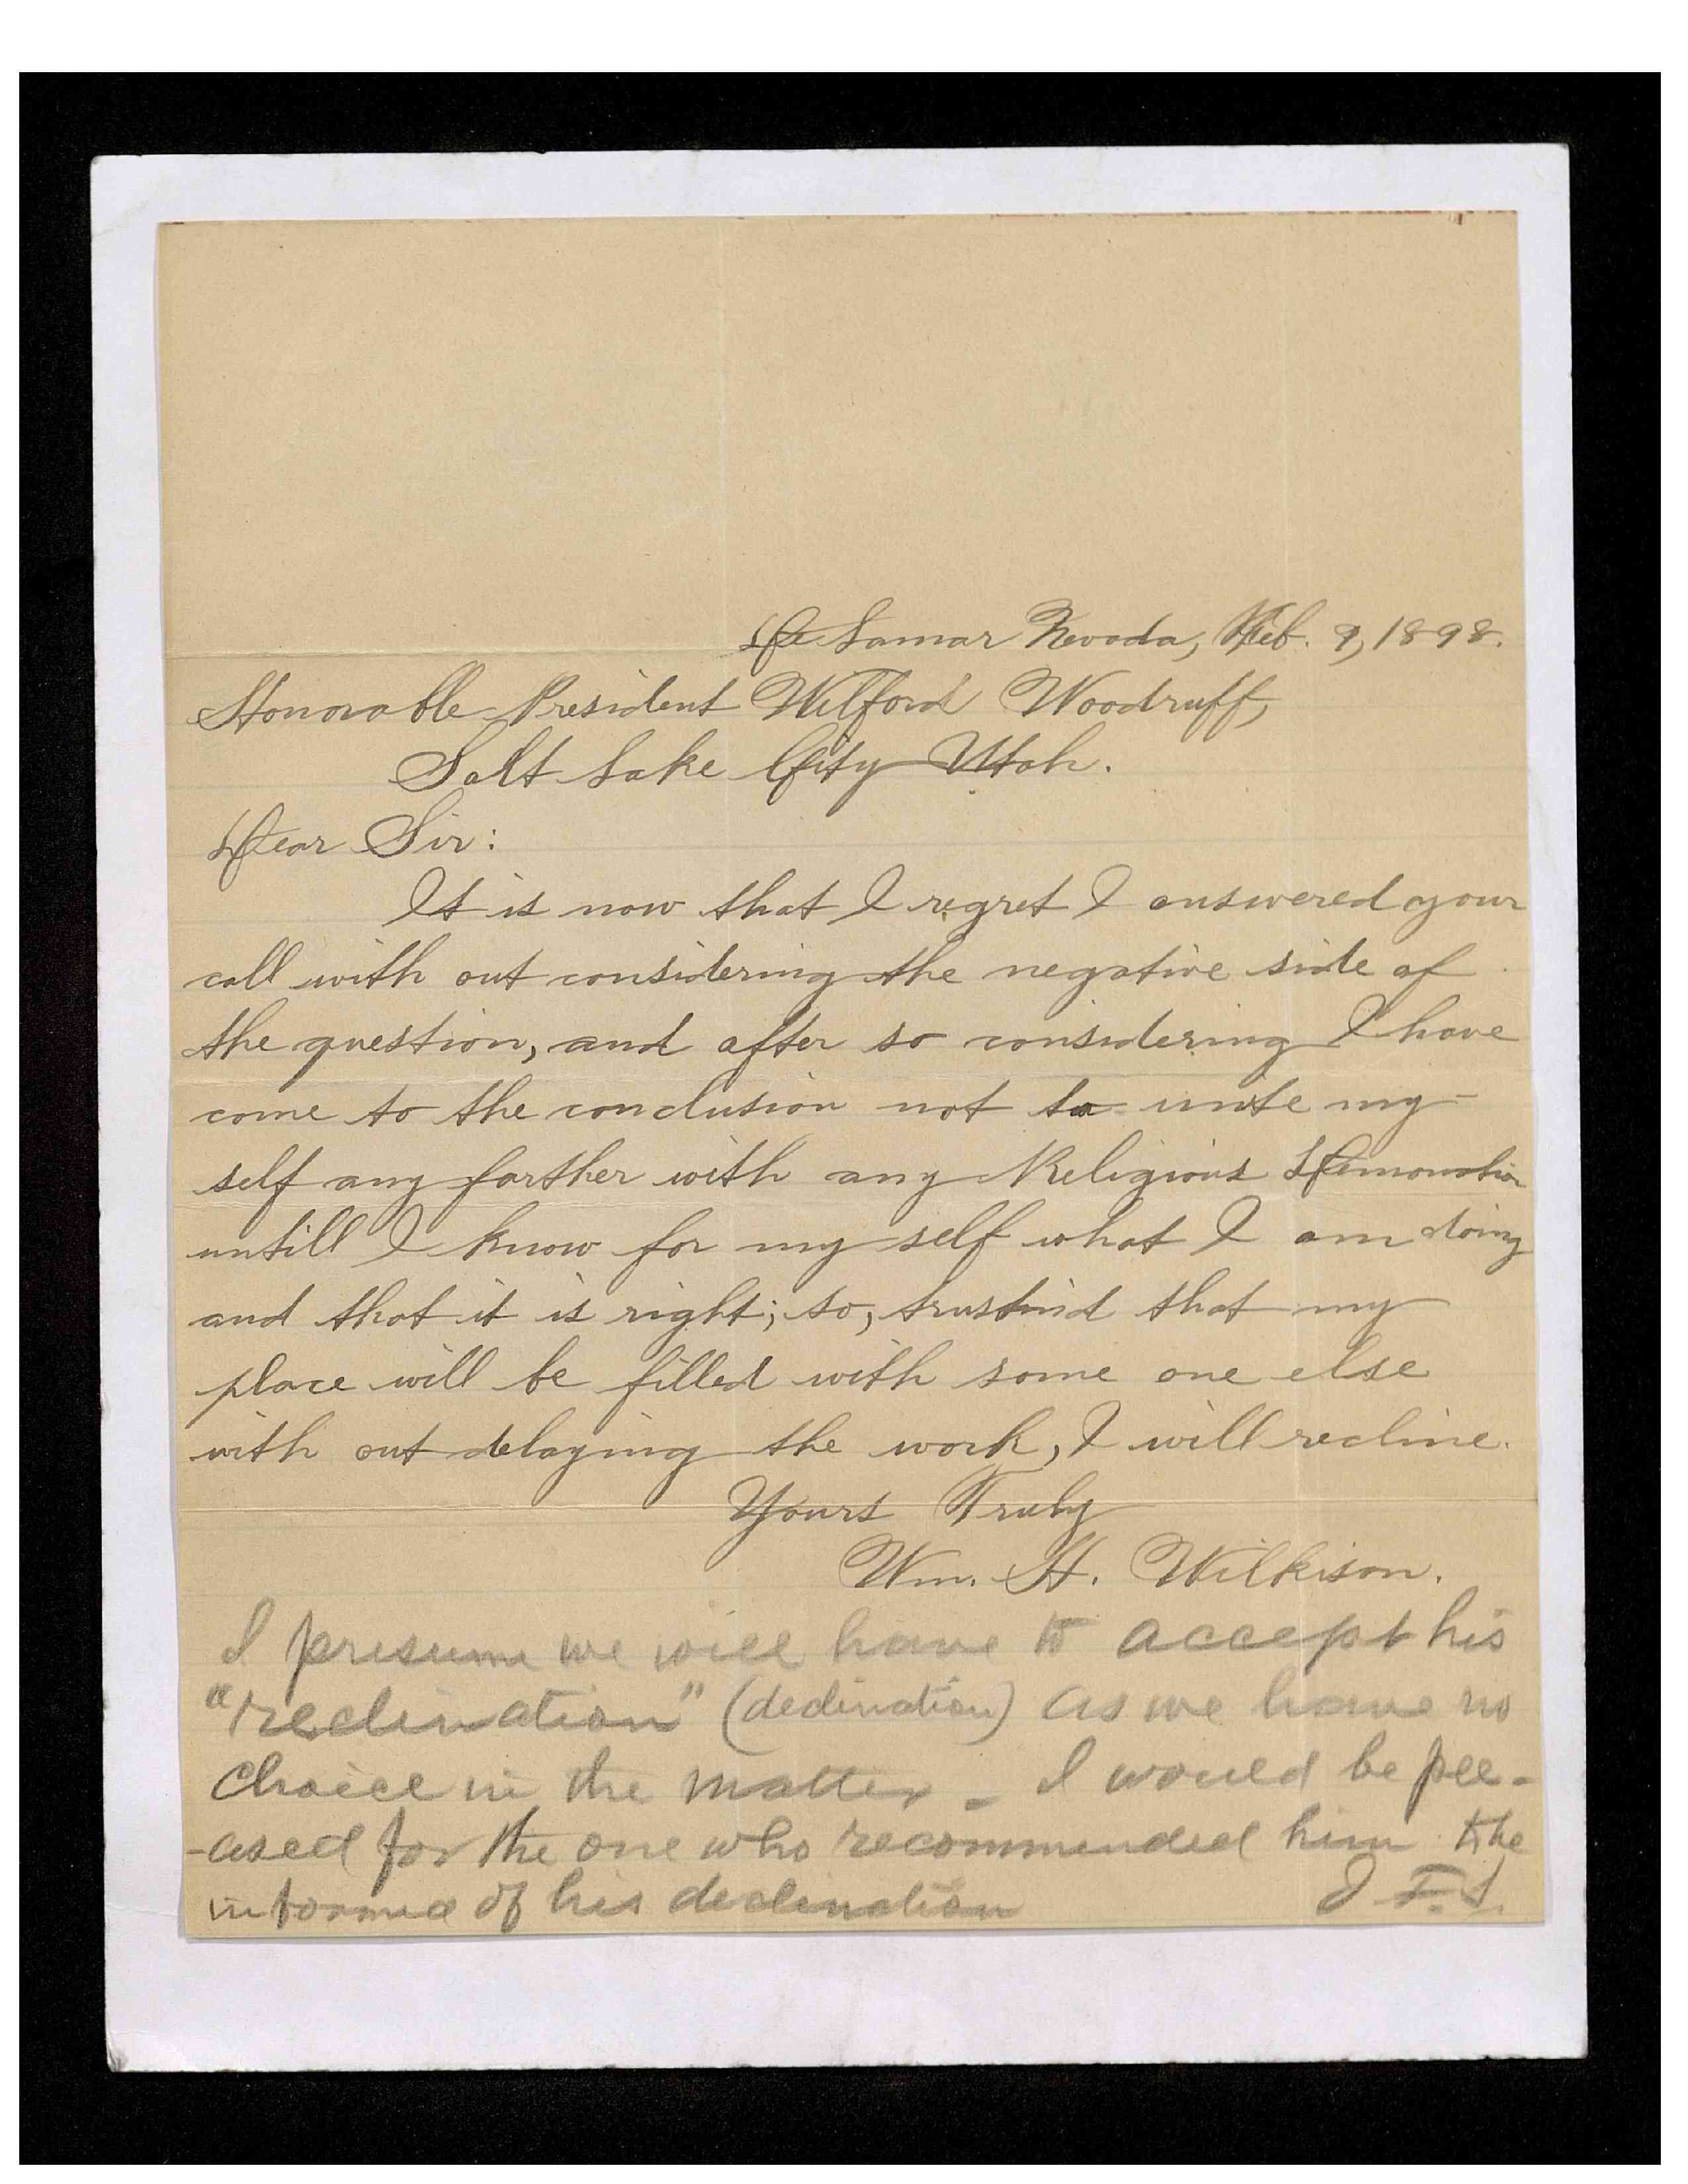 De Lamar Nevada, Feb. 9, 1898.
Honorable President Wilford Woodruff,
Salt Lake City Utah.
Dear Sir:
It is now that I regret I answered your
call with out considering the negative side of
the question, and after so considering I have
come to the conclusion not to unite my-
self any farther with any Religious Demonation
untill I know for my self what I am doing
and that it is right; so, trustind that my
place will be filled with some one else
with out delaying the work, I will recline.
Yours Truly
Wm. H. Wilkison.
I presume we will have to accept his
"reclination" (declination) as we have no
choice in the matter - I would be ple-
-ased for the one who recommended him to be
informed of his declination J. F. S.